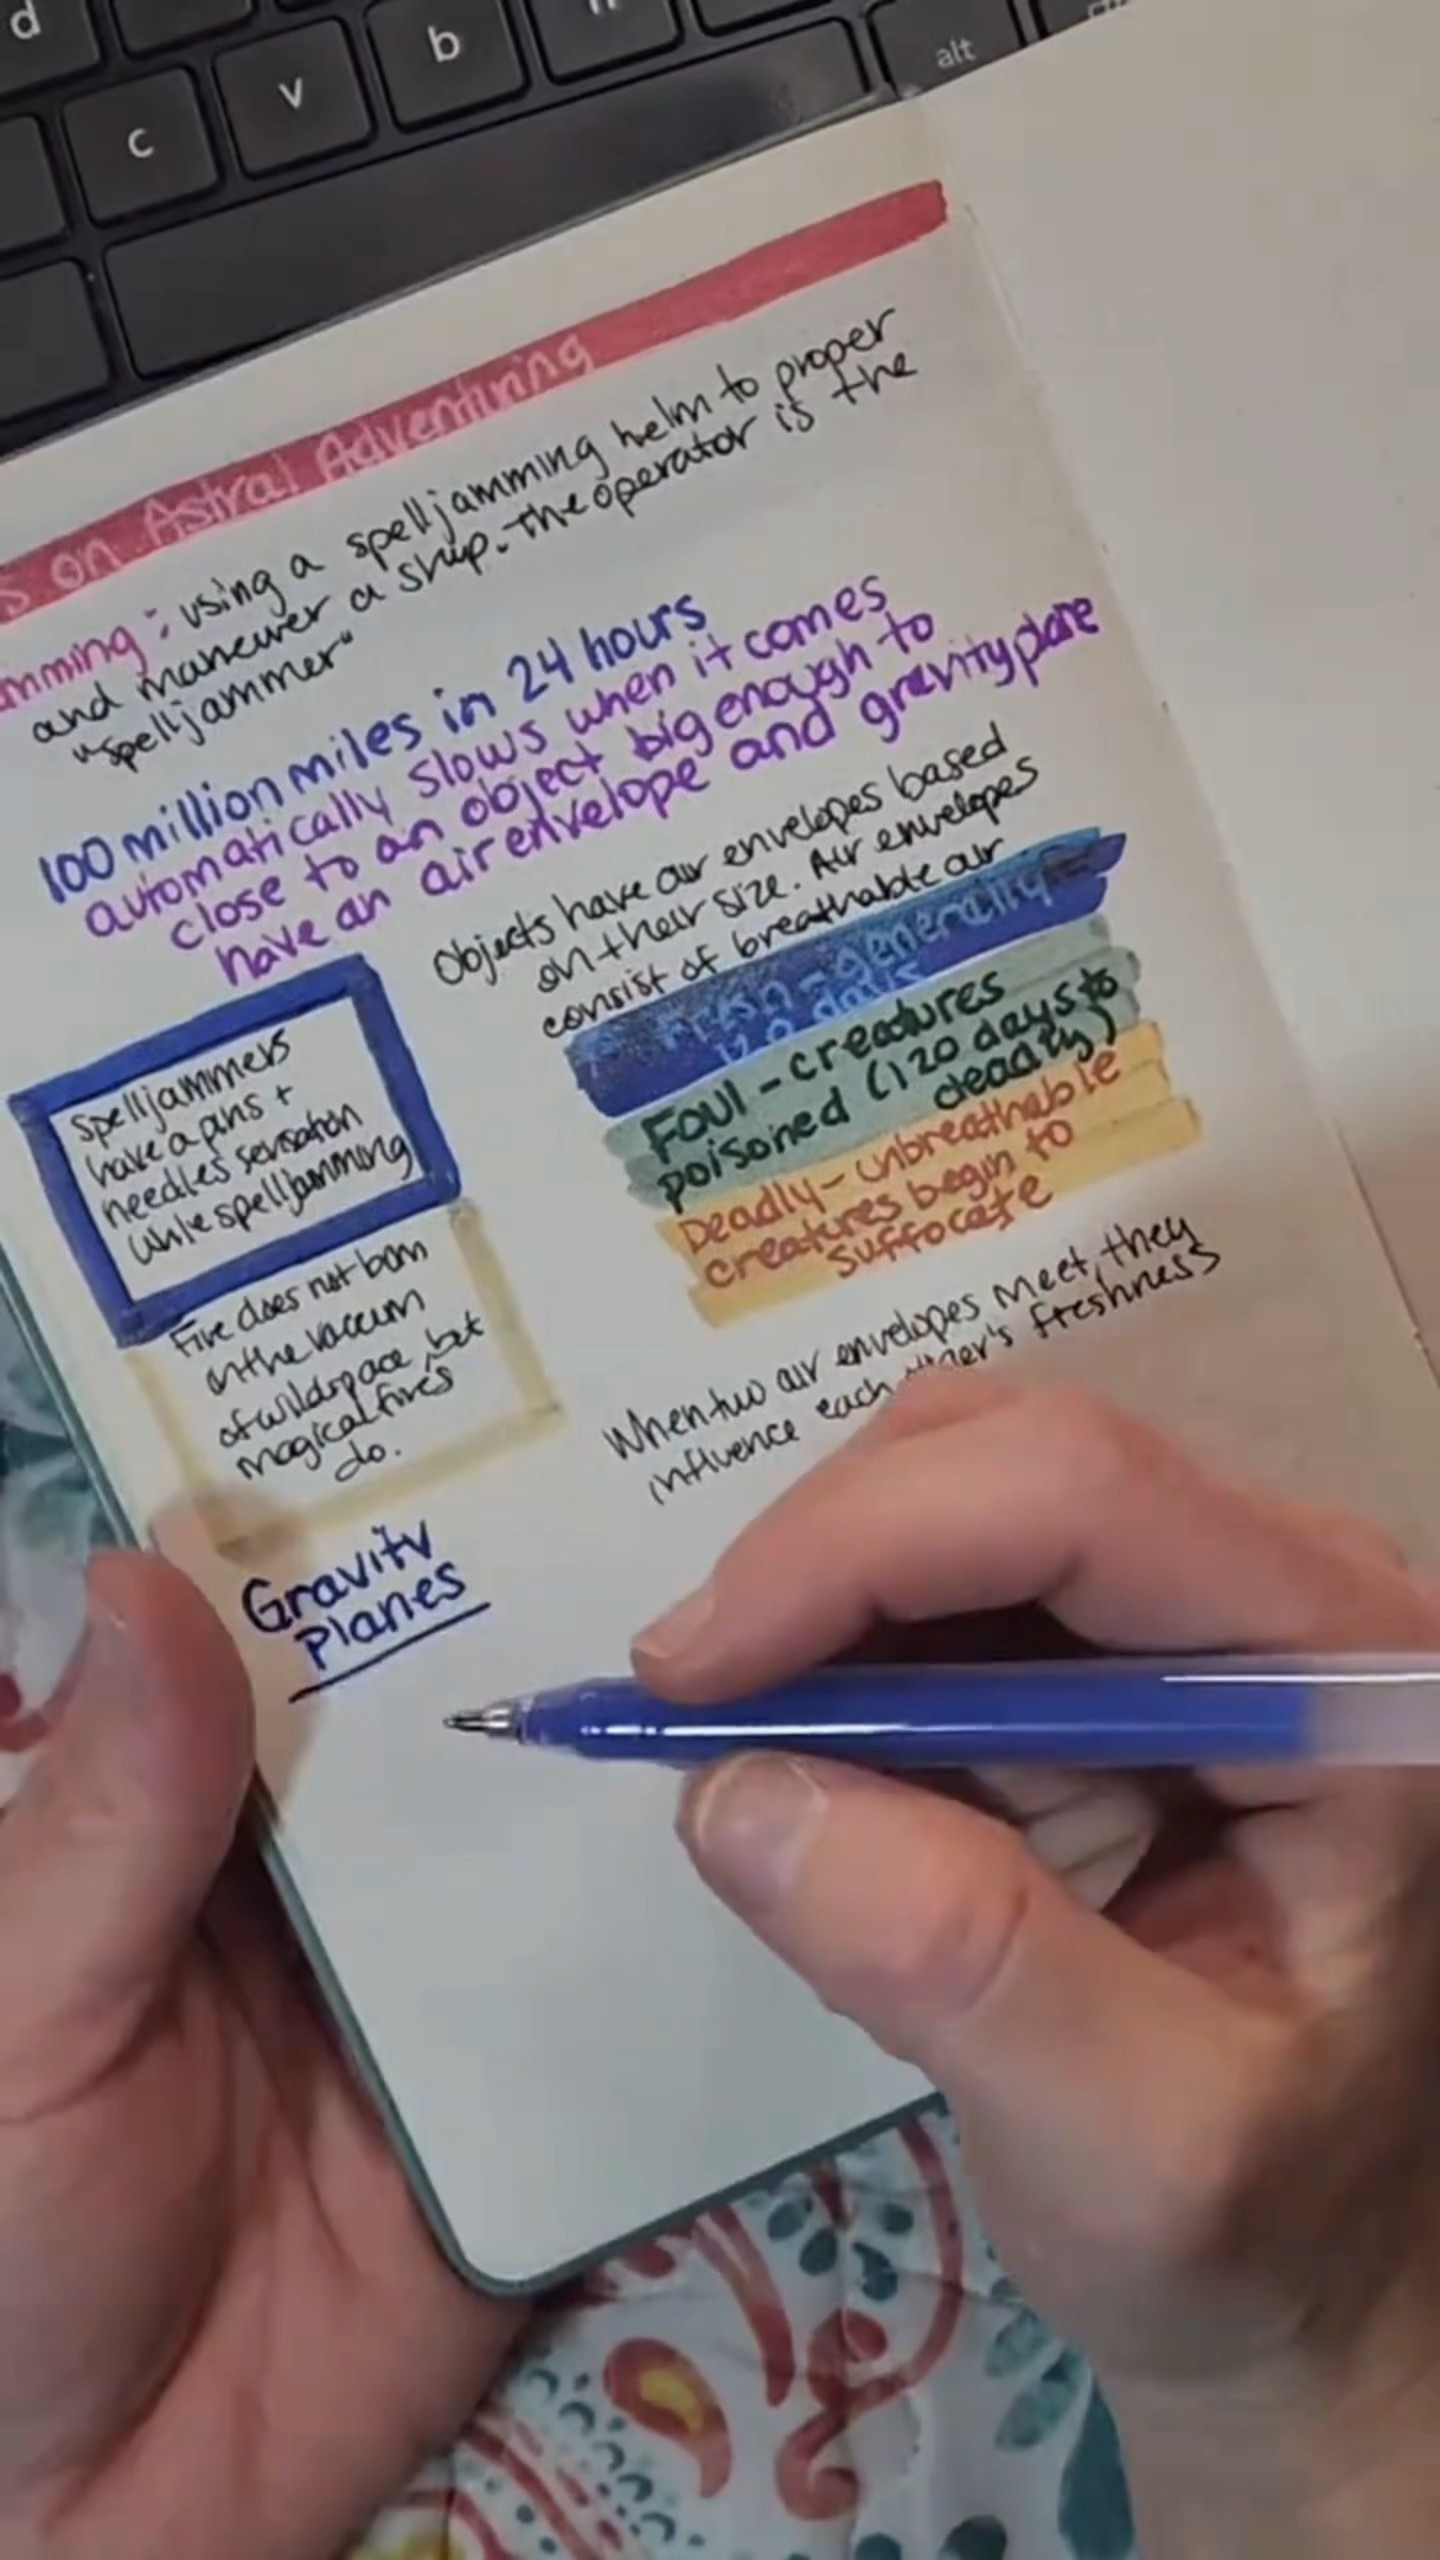 d
c
v
b
n
alt
s on Astral Adventuring
mming: using a spelljamming helm to proper
and maneuver a ship. The operator is the
"spelljammer"
100 million miles in 24 hours
automatically slows when it comes
close to an object big enough to
have an air envelope and gravity plane
Objects have air envelopes based
on their size. Air envelopes
consist of breathable air
Fresh - generally
120 days
Foul - creatures
poisoned (120 days to
deadly)
Deadly - unbreathable
creatures begin to
suffocate
When two air envelopes meet, they
influence each other's freshness
Spelljammers
have a pins +
needles sensation
while spelljamming
Fire does not burn
in the vaccum
of wildspace, but
magical fires
do.
Gravity
Planes